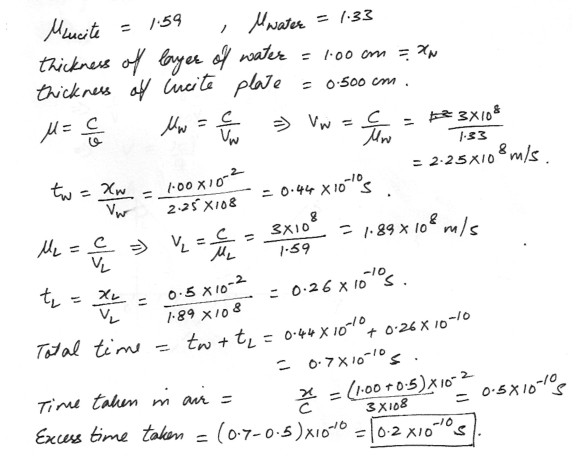 μLucite = 1.59 , μwater = 1.33
thickness of layer of water = 1.00 cm = xw
thickness of lucite plate = 0.500 cm.
μ = c/v μw = c/vw ⇒ vw = c/μw = 3×10^8/1.33
= 2.25×10^8 m/s.
tw = xw/vw = 1.00×10^-2/2.25×10^8 = 0.44×10^-10 s.
μL = c/vL ⇒ vL = c/μL = 3×10^8/1.59 = 1.89×10^8 m/s
tL = xL/vL = 0.5×10^-2/1.89×10^8 = 0.26×10^-10 s.
Total time = tw + tL = 0.44×10^-10 + 0.26×10^-10
= 0.7×10^-10 s.
Time taken in air = x/c = (1.00+0.5)×10^-2/3×10^8 = 0.5×10^-10 s
Excess time taken = (0.7-0.5)×10^-10 = 0.2×10^-10 s.